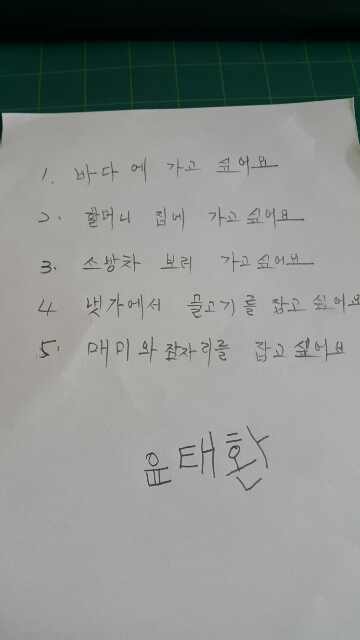 1. 바다에 가고 싶어요
2. 할머니 집에 가고싶어요
3. 소방차 보러 가고싶어요
4 냇가에서 물고기를 잡고 싶어요
5. 매미와 잠자리를 잡고 싶어요
윤태환